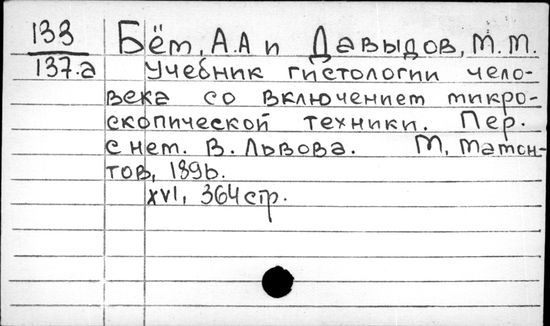 133
137.а
Бём, А.А и Давыдов, М.М.
Учебник гистологии чело-
века со включением микро-
скопической техники. Пер.
с нем. В. Львова. М, Мамон-
тов, 1896.
XVI, 364 стр.